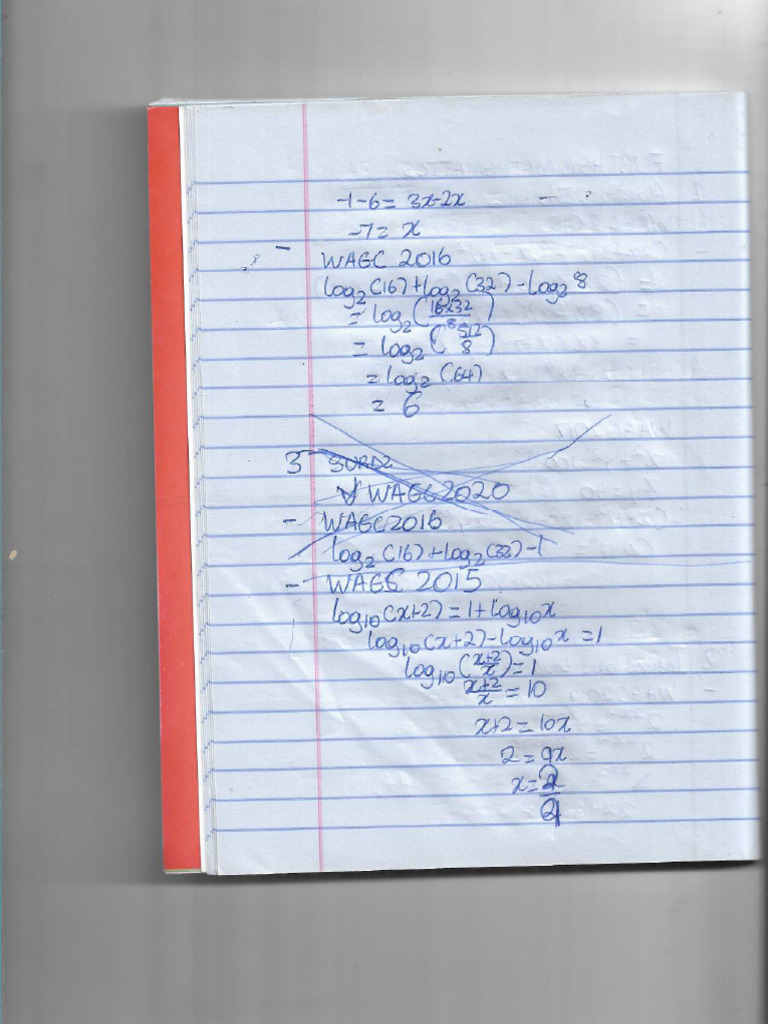 -1-6 = 3x-2x
-7 = x
- WAEC 2016
log₂(16)+log₂(32)-log₂8
= log₂(16x32/8)
= log₂(512/8)
= log₂(64)
= 6
3 SURDS
WAEC 2020
- WAEC 2016
log₂(16)+log₂(32)-1
- WAEC 2015
log₁₀(x+2) = 1+log₁₀x
log₁₀(x+2)-log₁₀x = 1
log₁₀(x+2/x) = 1
x+2/x = 10
x+2 = 10x
2 = 9x
x = 2/9